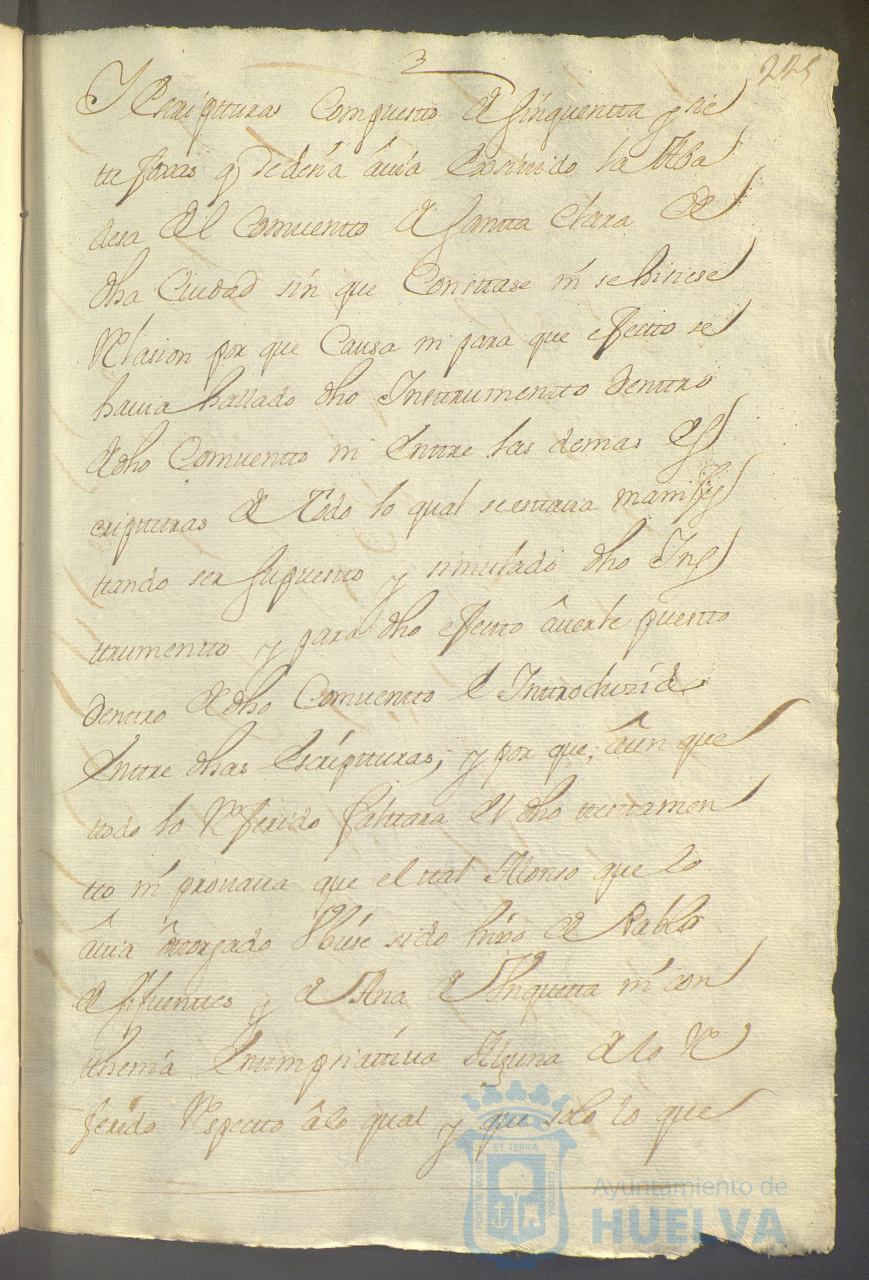 3
225
Y Escripturas Compuesto de sinquentta y sie
tte foxas q se desia âuia Exsiuido la Aba
desa del Comuentto de Santta Clara de
dha Ciudad sin que Constase ni se hisiese
Relasion por que Causa ni para que efectto se
hauia hallado dho Insttrumentto denttro
de dho Comuentto ni Enttre las demas es
cripturas de Todo lo qual se estaua manifes
ttando ser supuestto y simulado dho Ins
ttrumentto y para dho efectto âuerle puestto
denttro de dho Comuentto e Inttroduzido
Enttre dhas Escriptturas, y por que, âun que
ttodo lo Referido faltara el dho testtamen
tto ni prouaua que el ttal Alonso que lo
âuia ôttorgado Vbiese sido hixo de Pablo
de sifuenttes y de Ana de Anquetta ni con
thenia Enumpriattiua Alguna de lo Re
ferido Respectto âlo qual y que solo lo que
PORTUS MARIS ET TERRAE CUSTODIA
Ayuntamiento de
HUELVA